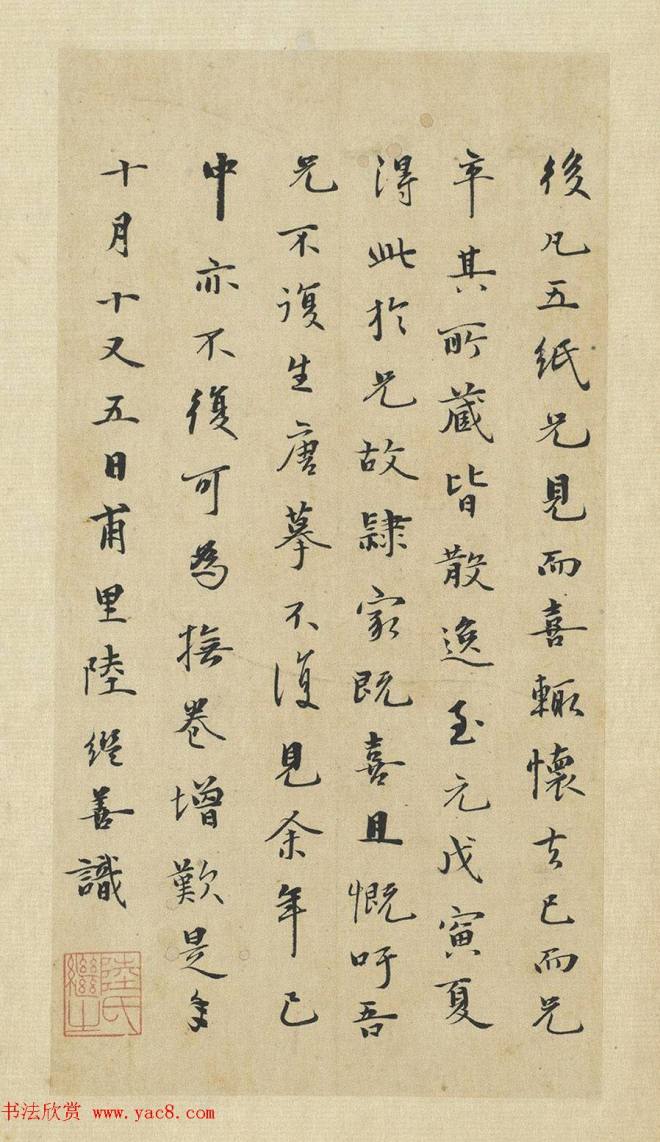 後凡五紙兄見而喜輒懷去已而兄
卒其所蔵皆散逸至元戊寅夏
得此於兄故隸家既喜且慨吁吾
兄不復生唐摹不復見余年已
中亦不復可為撫卷增歎是年
十月十又五日甫里陸繼善識
陸氏繼之
书法欣赏 www.yac8.com